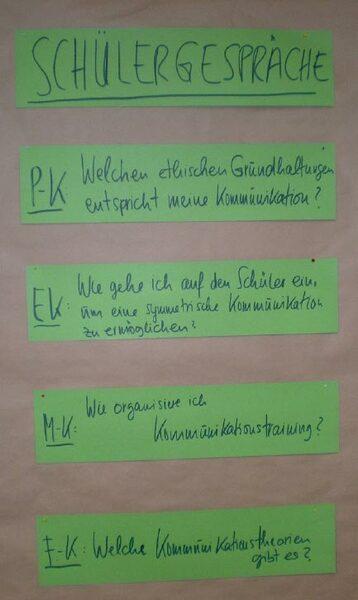 SCHÜLERGESPRÄCHE
P-K Welchen ethischen Grundhaltungen
entspricht meine Kommunikation?
EK: Wie gehe ich auf den Schüler ein,
um eine symmetrische Kommunikation
zu ermöglichen?
M-K: Wie organisiere ich
Kommunikationstraining?
F-K: Welche Kommunikationstheorien
gibt es?